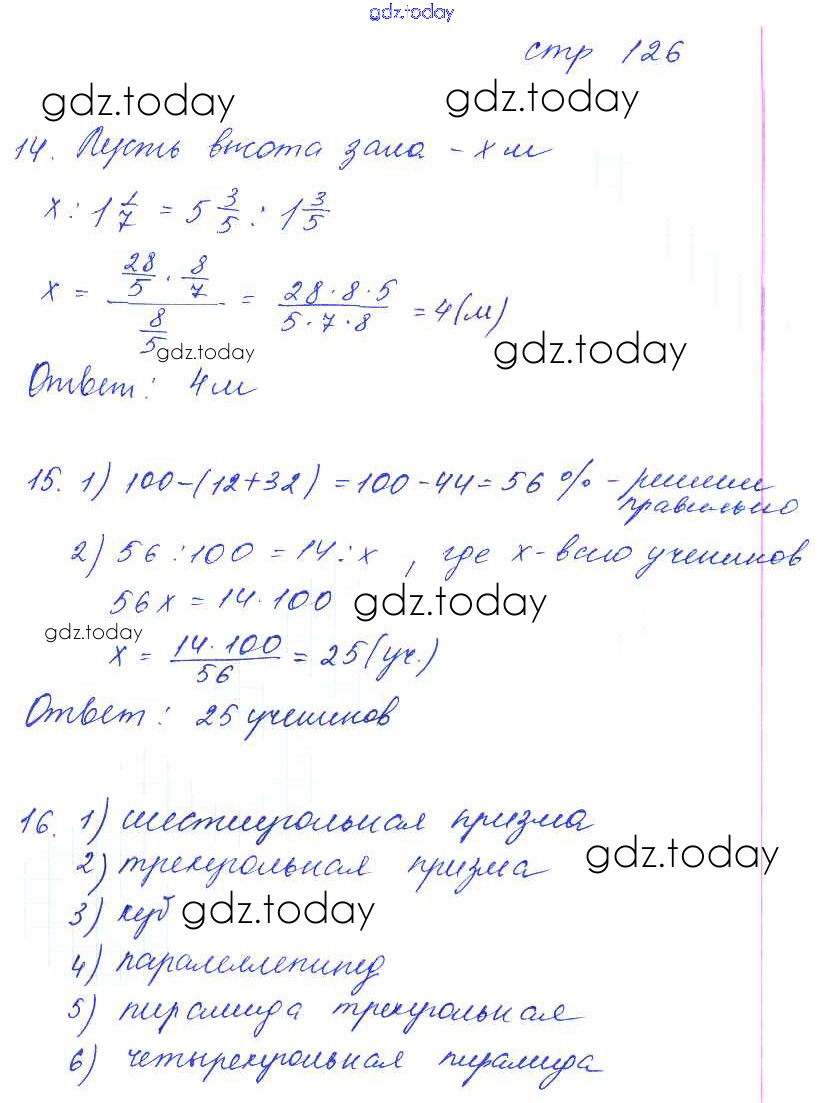 gdz.today
стр 126
gdz.today gdz.today
14. Пусть высота зала - x м
x : 1 1/7 = 5 3/5 : 1 3/5
x = (28/5 · 8/7) / (8/5) = (28 · 8 · 5) / (5 · 7 · 8) = 4 (м)
gdz.today gdz.today
Ответ: 4 м
15. 1) 100 - (12 + 32) = 100 - 44 = 56 % - решили
правильно
2) 56 : 100 = 14 : x , где x - всего учеников
56x = 14 · 100 gdz.today
gdz.today
x = (14 · 100) / 56 = 25 (уч.)
Ответ: 25 учеников
16. 1) шестиугольная призма
gdz.today
2) треугольная призма
3) куб gdz.today
4) паралеллепипед
5) пирамида треугольная
6) четырехугольная пирамида